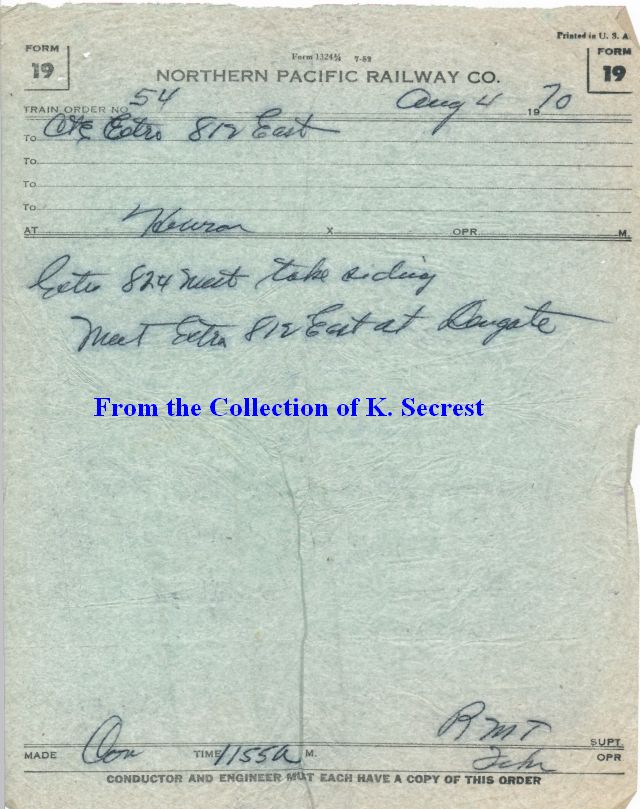 Printed in U. S. A
FORM
19
Form 1324¾ 7-52
FORM
19
NORTHERN PACIFIC RAILWAY CO.
TRAIN ORDER NO. 54 Aug 4 1970
To C&E Extra 812 East
To
To
To
AT X OPR. M.
Extra 824 West take siding
Meet Extra 812 East at
From the Collection of K. Secrest
RMT SUPT.
MADE TIME 1155A M. OPR
CONDUCTOR AND ENGINEER MUT EACH HAVE A COPY OF THIS ORDER